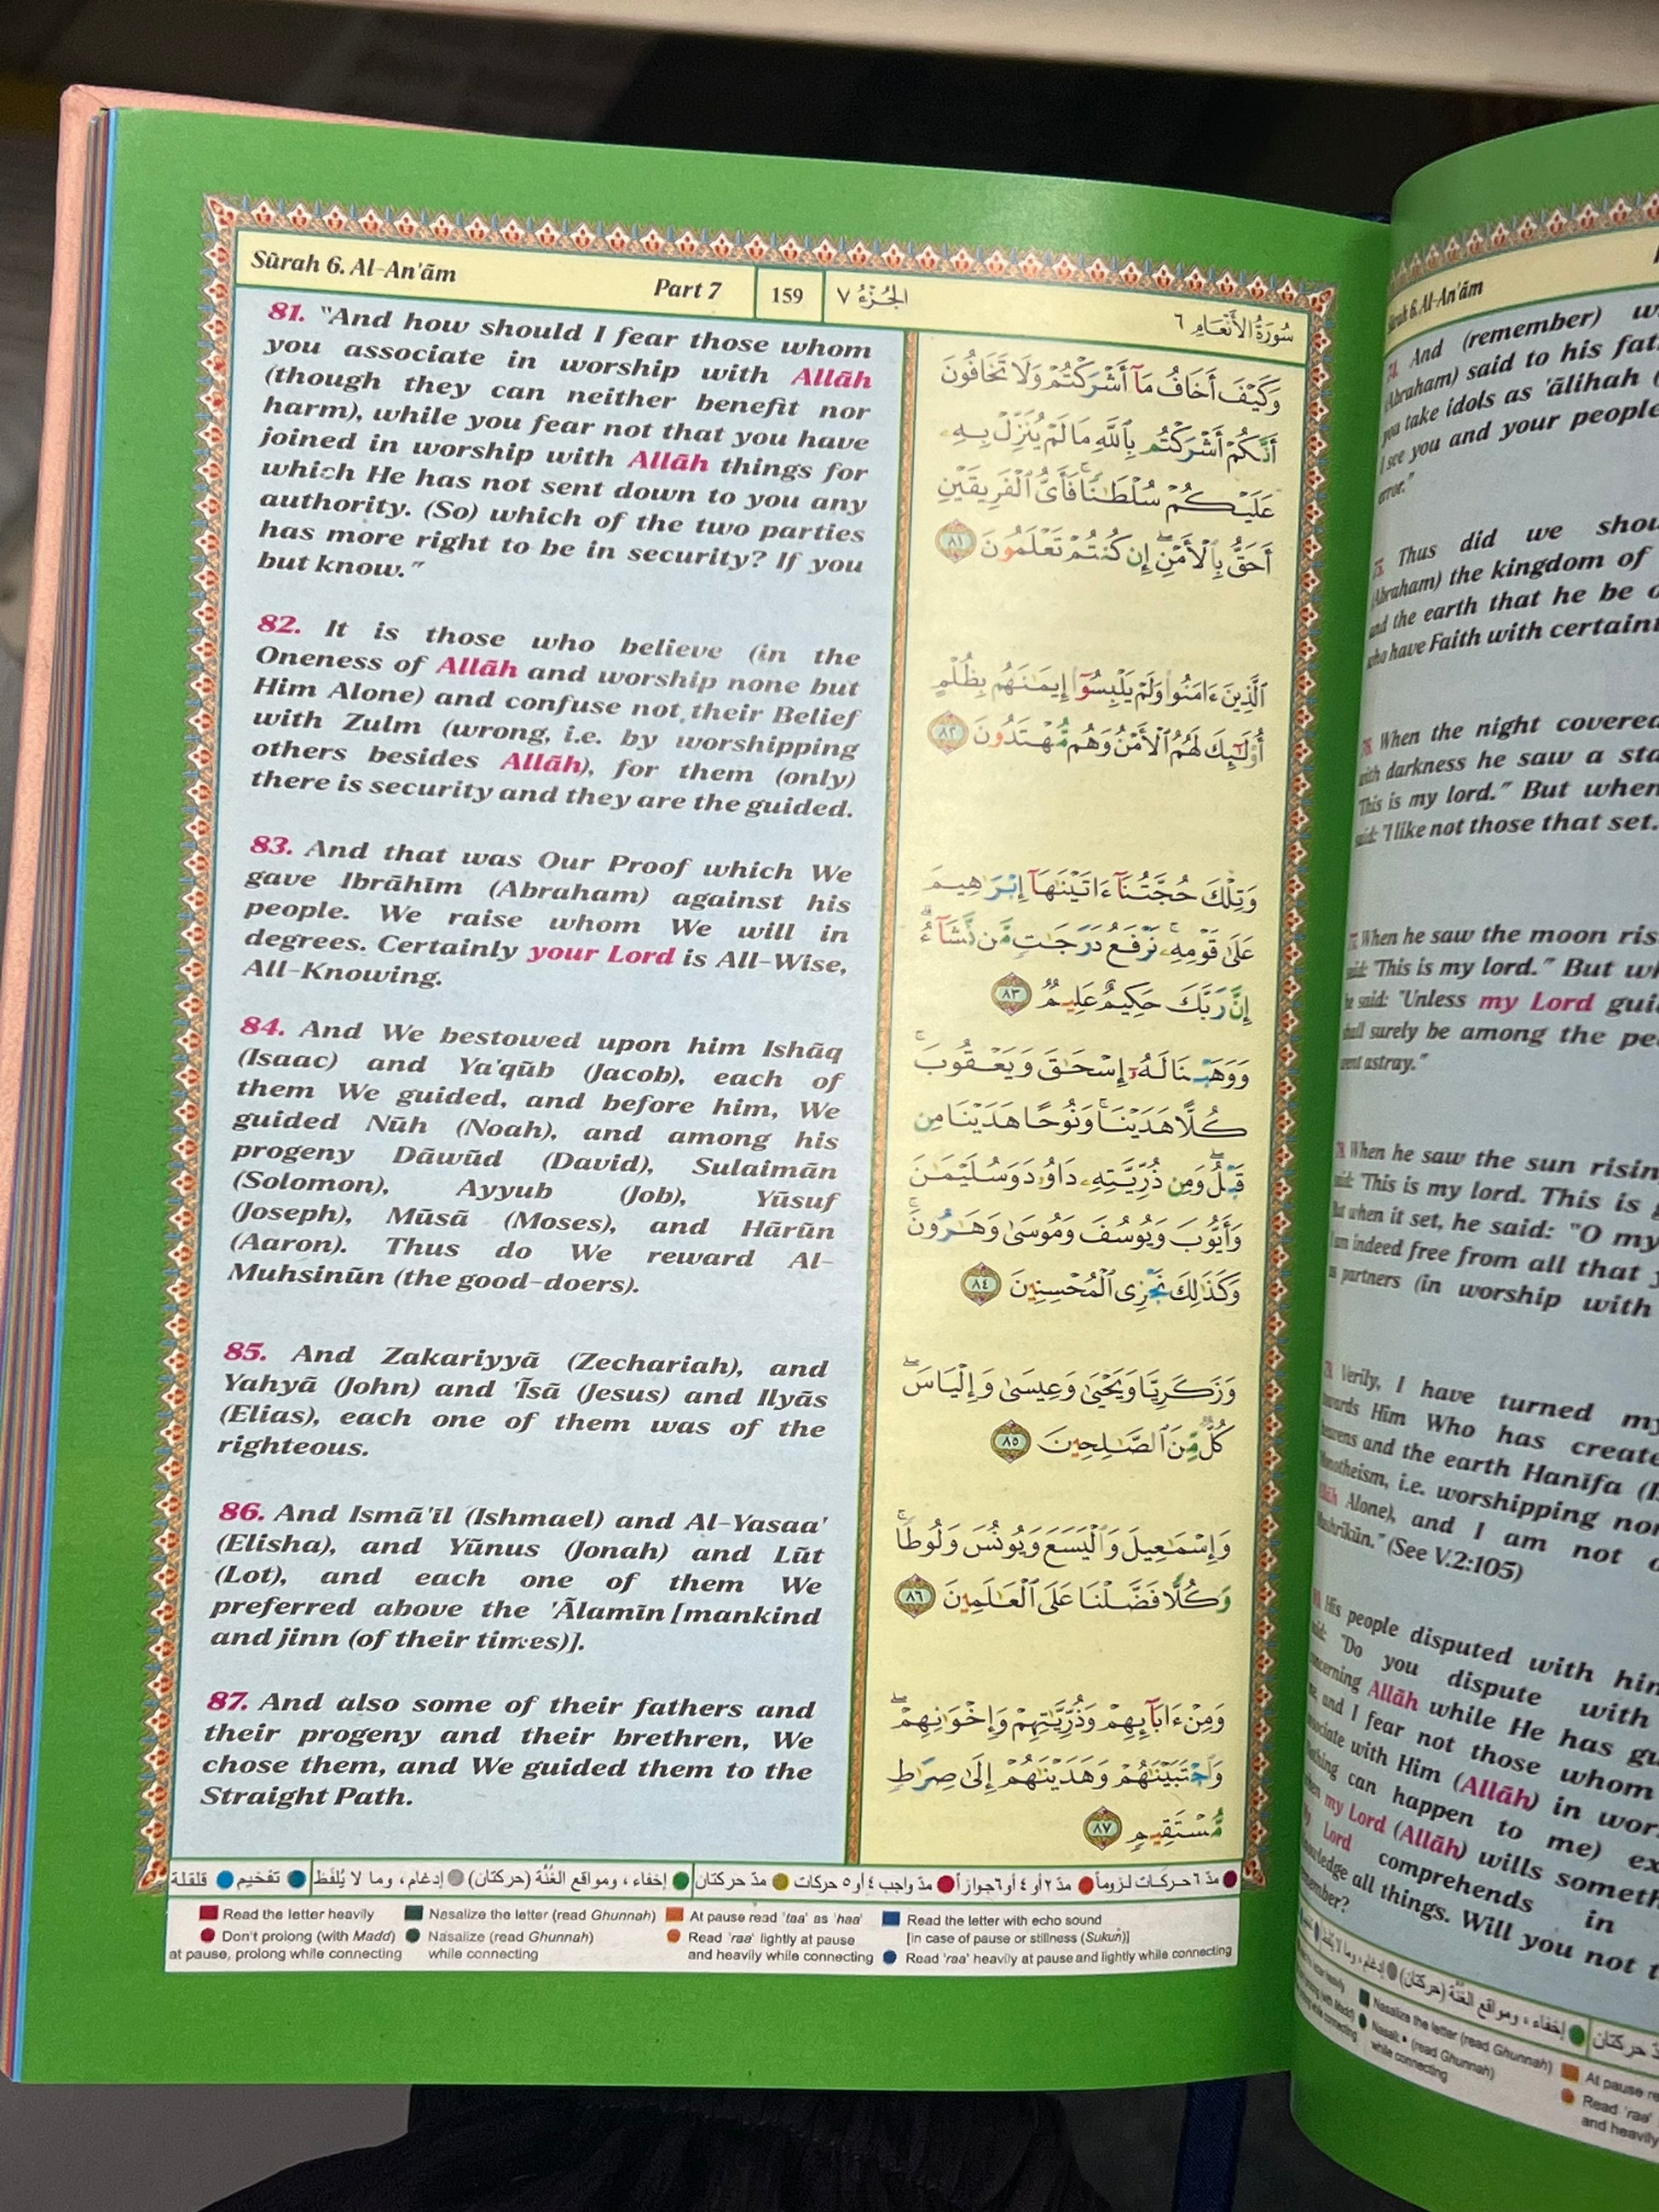 Sūrah 6. Al-An'ām
Part 7
159
الجُزْءُ ٧
سُورَةُ الأَنْعَامِ ٦
81. "And how should I fear those whom
you associate in worship with Allāh
(though they can neither benefit nor
harm), while you fear not that you have
joined in worship with Allāh things for
which He has not sent down to you any
authority. (So) which of the two parties
has more right to be in security? If you
but know."
82. It is those who believe (in the
Oneness of Allāh and worship none but
Him Alone) and confuse not their Belief
with Zulm (wrong, i.e. by worshipping
others besides Allāh), for them (only)
there is security and they are the guided.
83. And that was Our Proof which We
gave Ibrāhīm (Abraham) against his
people. We raise whom We will in
degrees. Certainly your Lord is All-Wise,
All-Knowing.
84. And We bestowed upon him Ishāq
(Isaac) and Ya'qūb (Jacob), each of
them We guided, and before him, We
guided Nūh (Noah), and among his
progeny Dāwūd (David), Sulaimān
(Solomon), Ayyub (Job), Yūsuf
(Joseph), Mūsā (Moses), and Hārūn
(Aaron). Thus do We reward Al-
Muhsinūn (the good-doers).
85. And Zakariyyā (Zechariah), and
Yahyā (John) and 'Īsā (Jesus) and Ilyās
(Elias), each one of them was of the
righteous.
86. And Ismā'īl (Ishmael) and Al-Yasaa'
(Elisha), and Yūnus (Jonah) and Lūt
(Lot), and each one of them We
preferred above the 'Ālamīn [mankind
and jinn (of their times)].
87. And also some of their fathers and
their progeny and their brethren, We
chose them, and We guided them to the
Straight Path.
وَكَيْفَ أَخَافُ مَآ أَشْرَكْتُمْ وَلَا تَخَافُونَ
أَنَّكُمْ أَشْرَكْتُم بِٱللَّهِ مَا لَمْ يُنَزِّلْ بِهِۦ
عَلَيْكُمْ سُلْطَٰنًا ۚ فَأَىُّ ٱلْفَرِيقَيْنِ
أَحَقُّ بِٱلْأَمْنِ ۖ إِن كُنتُمْ تَعْلَمُونَ ٨١
ٱلَّذِينَ ءَامَنُوا۟ وَلَمْ يَلْبِسُوٓا۟ إِيمَٰنَهُم بِظُلْمٍ
أُو۟لَٰٓئِكَ لَهُمُ ٱلْأَمْنُ وَهُم مُّهْتَدُونَ ٨٢
وَتِلْكَ حُجَّتُنَآ ءَاتَيْنَٰهَآ إِبْرَٰهِيمَ
عَلَىٰ قَوْمِهِۦ ۚ نَرْفَعُ دَرَجَٰتٍ مَّن نَّشَآءُ ۗ
إِنَّ رَبَّكَ حَكِيمٌ عَلِيمٌ ٨٣
وَوَهَبْنَا لَهُۥٓ إِسْحَٰقَ وَيَعْقُوبَ ۚ
كُلًّا هَدَيْنَا ۚ وَنُوحًا هَدَيْنَا مِن
قَبْلُ ۖ وَمِن ذُرِّيَّتِهِۦ دَاوُۥدَ وَسُلَيْمَٰنَ
وَأَيُّوبَ وَيُوسُفَ وَمُوسَىٰ وَهَٰرُونَ ۚ
وَكَذَٰلِكَ نَجْزِى ٱلْمُحْسِنِينَ ٨٤
وَزَكَرِيَّا وَيَحْيَىٰ وَعِيسَىٰ وَإِلْيَاسَ ۖ
كُلٌّ مِّنَ ٱلصَّٰلِحِينَ ٨٥
وَإِسْمَٰعِيلَ وَٱلْيَسَعَ وَيُونُسَ وَلُوطًا ۚ
وَكُلًّا فَضَّلْنَا عَلَى ٱلْعَٰلَمِينَ ٨٦
وَمِنْ ءَابَآئِهِمْ وَذُرِّيَّٰتِهِمْ وَإِخْوَٰنِهِمْ ۖ
وَٱجْتَبَيْنَٰهُمْ وَهَدَيْنَٰهُمْ إِلَىٰ صِرَٰطٍ
مُّسْتَقِيمٍ ٨٧
مدّ ٦ حركات لزوماً مدّ ٢ أو ٤ أو ٦ جوازاً مدّ واجب ٤ أو ٥ حركات مدّ حركتان إخفاء، ومواقع الغُنَّة (حركتان) إدغام، وما لا يُلفَظ تفخيم قلقلة
Read the letter heavily
Nasalize the letter (read Ghunnah)
At pause read 'taa' as 'haa'
Read the letter with echo sound
[in case of pause or stillness (Sukun)]
Don't prolong (with Madd)
at pause, prolong while connecting
Nasalize (read Ghunnah)
while connecting
Read 'raa' lightly at pause
and heavily while connecting
Read 'raa' heavily at pause and lightly while connecting
Sūrah 6. Al-An'ām
And (remember)
(Abraham) said to his
you take idols as 'ālihah
I see you and your people
error."
Thus did we
(Abraham) the kingdom of
and the earth that he be
who have Faith with
When the night covered
with darkness he saw a
"This is my lord." But when
said: "I like not those that set.
When he saw the moon
said: "This is my lord." But
he said: "Unless my Lord
shall surely be among the
went astray."
When he saw the sun
said: "This is my lord. This is
But when it set, he said: "O my
I am indeed free from all that
as partners (in worship with
Verily, I have turned
towards Him Who has
heavens and the earth Hanīfa
Monotheism, i.e. worshipping
Allāh Alone), and I am not
Mushrikūn." (See V.2:105)
His people disputed with
said: "Do you dispute with
concerning Allāh while He has
me, and I fear not those whom
associate with Him (Allāh) in
Nothing can happen to me)
when my Lord (Allāh) wills
My Lord comprehends in
knowledge all things. Will you not
remember?